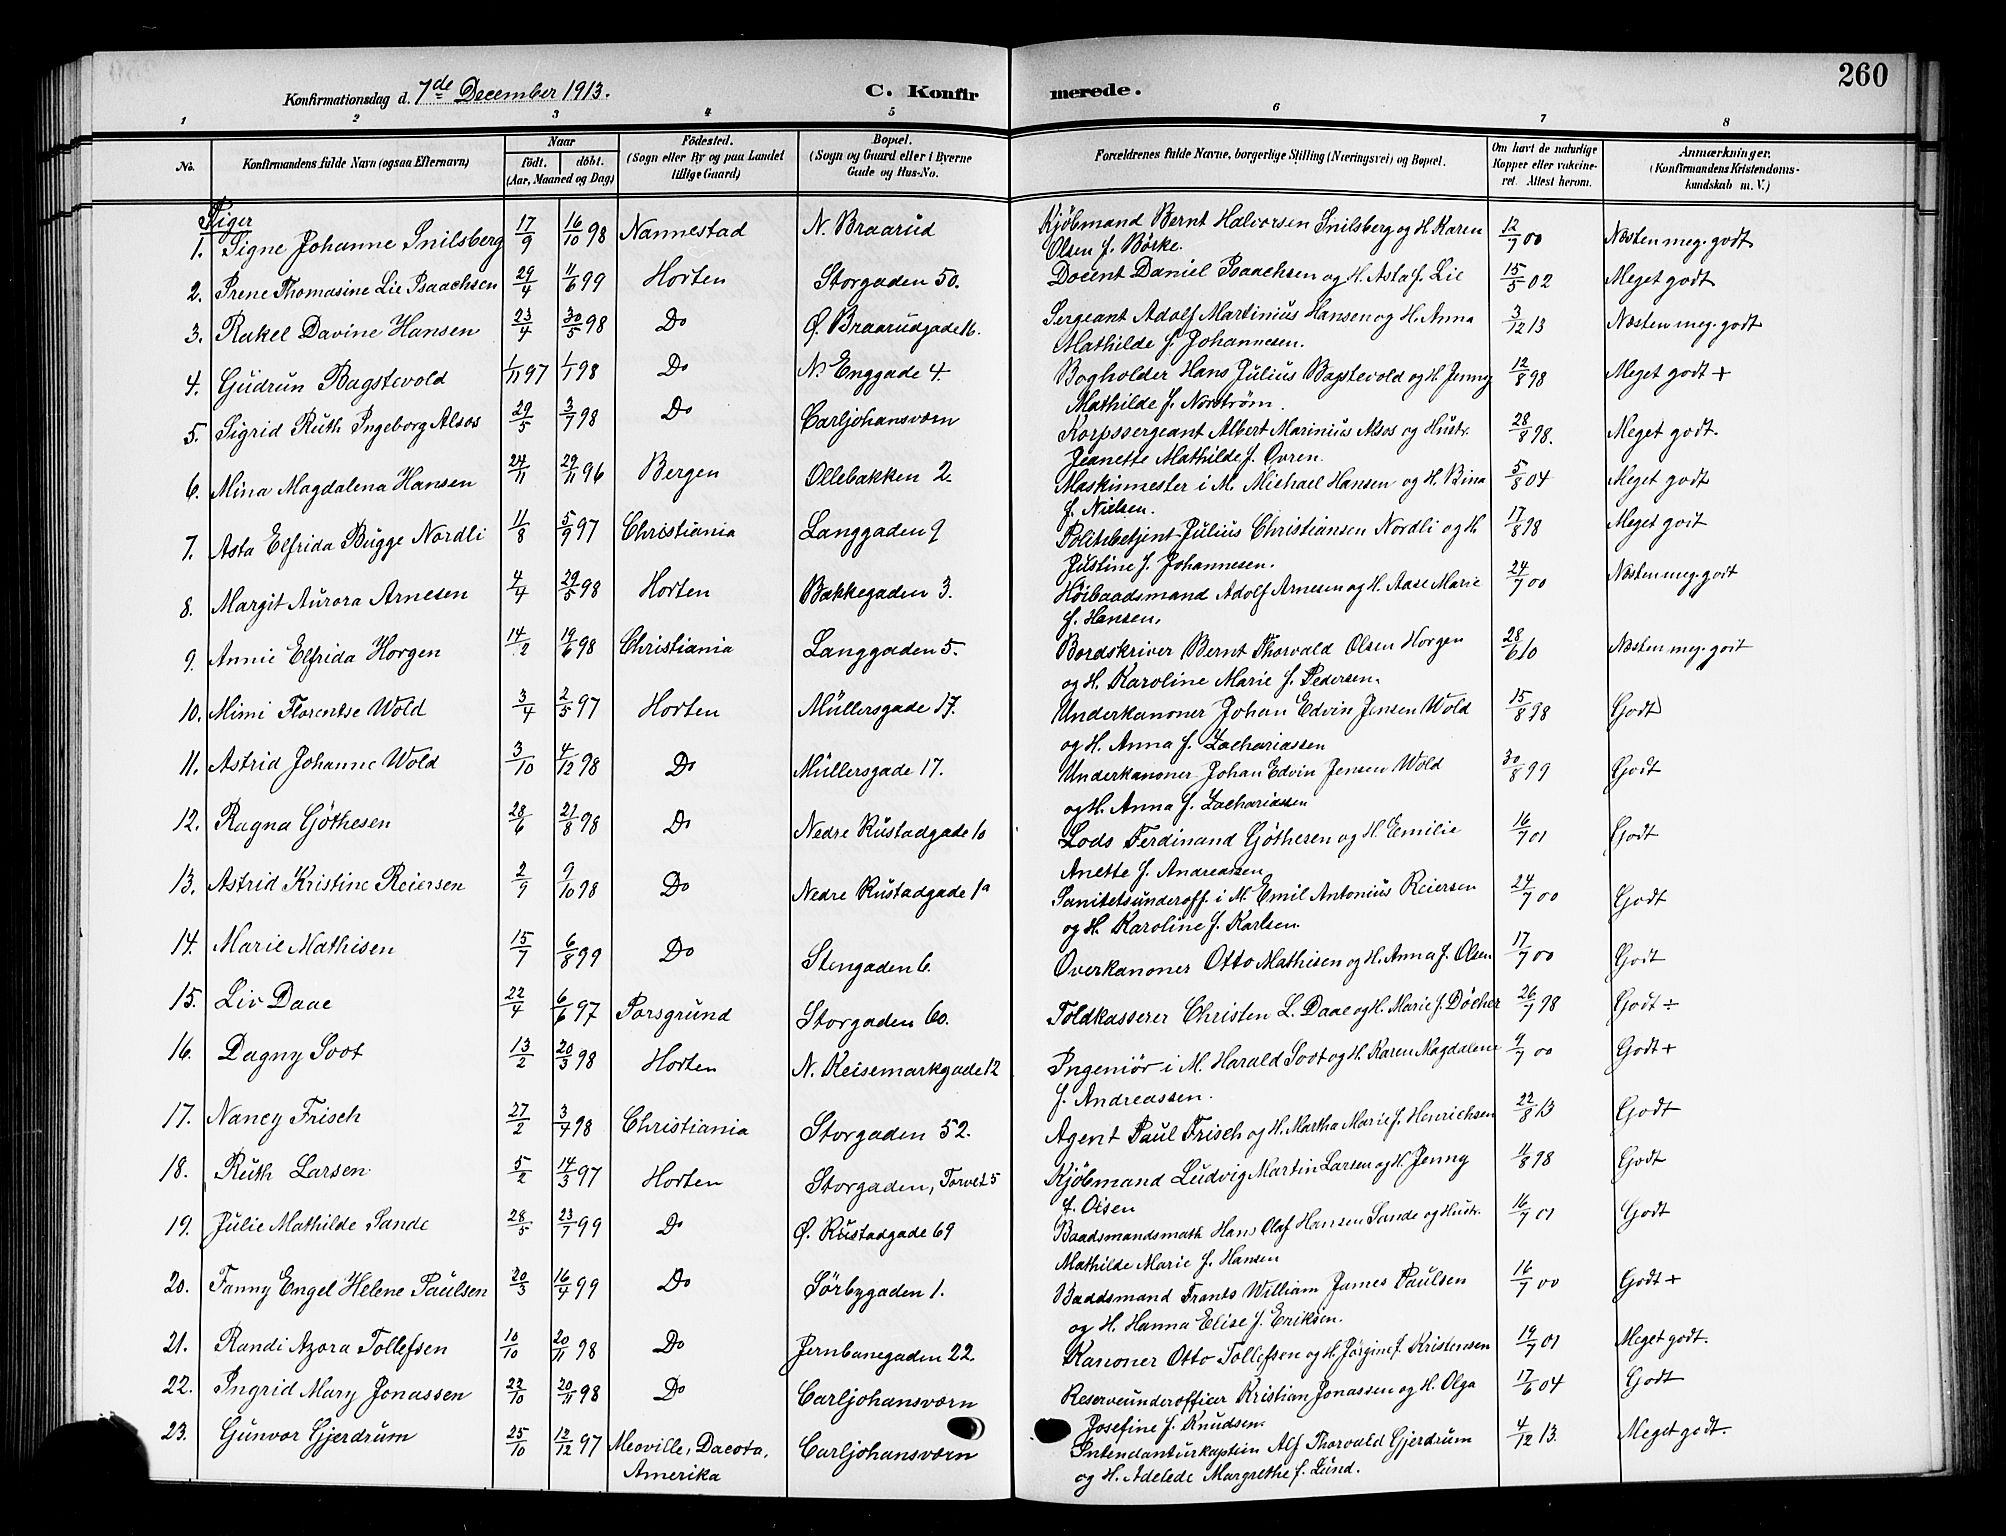 260
Konfirmationsdag d. 7de December 1913. C. Konfirmerede.
1 2 3 4 5 6 7 8
No. Konfirmandens fulde Navn (ogsaa Efternavn) Naar født. døbt. (Aar, Maaned og Dag) Fødested. (Sogn eller By og paa Landet tillige Gaard) Bopæl. (Sogn og Gaard eller i Byerne Gade og Hus-No. Forældrenes fulde Navne, borgerlige Stilling (Næringsvei) og Bopæl. Om havt de naturlige Kopper eller vakcineret. Attest herom. Anmærkninger. (Konfirmandens Kristendomskundskab m. V.)
Piger
1. Signe Johanne Snilsberg 17/9 16/10 98 Nannestad N. Braarud Kjøbmand Bernt Halvorsen Snilsberg og H. Karen 12/7 00 Næsten meg. godt
Olsen f. Børke.
2. Irene Thomasine Lie Isaachsen 29/4 11/6 99 Horten Storgaden 50. Docent Daniel Isaachsen og H. Asta f. Lie 15/5 02 Meget godt
3. Rakel Davine Hansen 23/4 30/5 98 Do Ø. Braarudgade 16. Sergeant Adolf Martinius Hansen og H. Anna 3/12 13 Næsten meg. godt
Mathilde f. Johannesen.
4. Gudrun Bagstevold 1/11 97 1/1 98 Do N. Enggade 4. Bogholder Hans Julius Bagstevold og H. Jenny 12/8 98 Meget godt +
Mathilde f. Norstrøm.
5. Sigrid Ruth Ingeborg Alsos 29/5 3/7 98 Do Carljohansværn Korpssergeant Albert Marinius Alsos og Hustr. 28/8 98. Meget godt.
Jeanette Mathilde f. Øvren.
6. Mina Magdalena Hansen 24/11 29/11 96 Bergen Ollebakken 2. Maskinmester i M. Michael Hansen og H. Bina 5/8 04 Meget godt
f. Nielsen.
7. Asta Elfrida Bugge Nordli 11/8 5/9 97 Christiania Langgaden 9 Politibetjent Julius Christiansen Nordli og H. 17/8 98 Meget godt
Justine f. Johannesen.
8. Margit Aurora Arnesen 4/4 29/5 98 Horten Bakkegaden 3. Høibaadsmand Adolf Arnesen og H. Aase Marie 24/7 00 Næsten meg. godt
f. Hansen.
9. Annie Elfrida Horgen 14/2 19/6 98 Christiania Langgaden 5. Bordskriver Bernt Thorvald Olsen Horgen 28/6 10 Næsten meg. godt
og H. Karoline Marie f. Pedersen.
10. Mimi Florentse Wold 3/4 2/5 97 Horten Müllersgade 17. Underkanoner Johan Edvin Jensen Wold 15/8 98 Godt
og H. Anna f. Zachariassen
11. Astrid Johanne Wold 3/10 4/12 98 Do Müllersgade 17. Underkanoner Johan Edvin Jensen Wold 30/8 99 Godt
og H. Anna f. Zachariassen
12. Ragna Gøthesen 28/6 21/8 98 Do Nedre Rustadgade 10 Lods Ferdinand Gøthesen og H. Emilie 16/7 01 Godt
Anette f. Andreassen
13. Astrid Kristine Reiersen 2/9 9/10 98 Do Nedre Rustadgade 1a Sanitetsunderoff. i M. Emil Antonius Reiersen 24/7 00 Godt
og H. Karoline f. Karlsen.
14. Marie Mathisen 15/7 6/8 99 Do Stengaden 6. Overkanoner Otto Mathisen og H. Anna f. Olsen 17/7 00 Godt
15. Liv Daae 22/4 6/6 97 Porsgrund Storgaden 60. Toldkasserer Christen L. Daae og H. Marie f. Døcker 26/7 98 Godt ÷
16. Dagny Soot 13/2 20/3 98 Horten N. Keisemarkgade 12 Ingeniør i M. Harald Soot og H. Karen Magdalene 9/7 00 Godt +
f. Andreassen.
17. Nancy Frisch 27/2 3/4 98 Christiania Storgaden 52. Agent Paul Frisch og H. Martha Marie f. Henrichsen 22/8 13 Godt
18. Ruth Larsen 5/2 14/3 97 Horten Storgaden, Torvet 5 Kjøbmand Ludvig Martin Larsen og H. Jenny 11/8 98 Godt
f. Olsen
19. Julie Mathilde Sande 28/5 23/7 99 Do Ø. Rustadgade 69 Baadsmandsmath Hans Olaf Hansen Sande og Hustr. 16/7 01 Godt
Mathilde Marie f. Hansen
20. Fanny Engel Helene Paulsen 20/3 16/4 99 Do Sørbygaden 1. Baadsmand Frants William James Paulsen 16/7 00 Godt +
og H. Hanna Elise f. Eriksen.
21. Randi Azora Tollefsen 10/10 20/11 98 Do Jernbanegaden 22. Kanoner Otto Tollefsen og H. Jørgine f. Kristensen 19/7 01 Meget godt.
22. Ingrid Mary Jonassen 22/10 20/11 98 Do Carljohansværn Reserveunderofficer Kristian Jonassen og H. Olga 17/6 04 Godt
Josefine f. Knudsen.
23. Gunvor Gjerdrum 25/10 12/12 97 Meoville, Dacota, Carljohansværn Intendanturkaptein Alf Thorvald Gjerdrum 4/12 13. Meget godt.
Amerika og H. Adelede Margrethe f. Lund.